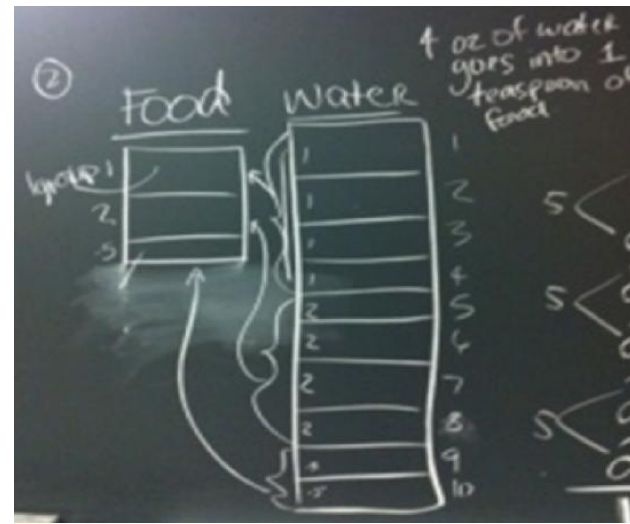 2
Food
Water
4 oz of water
goes into 1
teaspoon of
food
group 1
2
.5
1
1
1
1
2
2
2
2
.5
.5
1
2
3
4
5
6
7
8
9
10
5
5
5